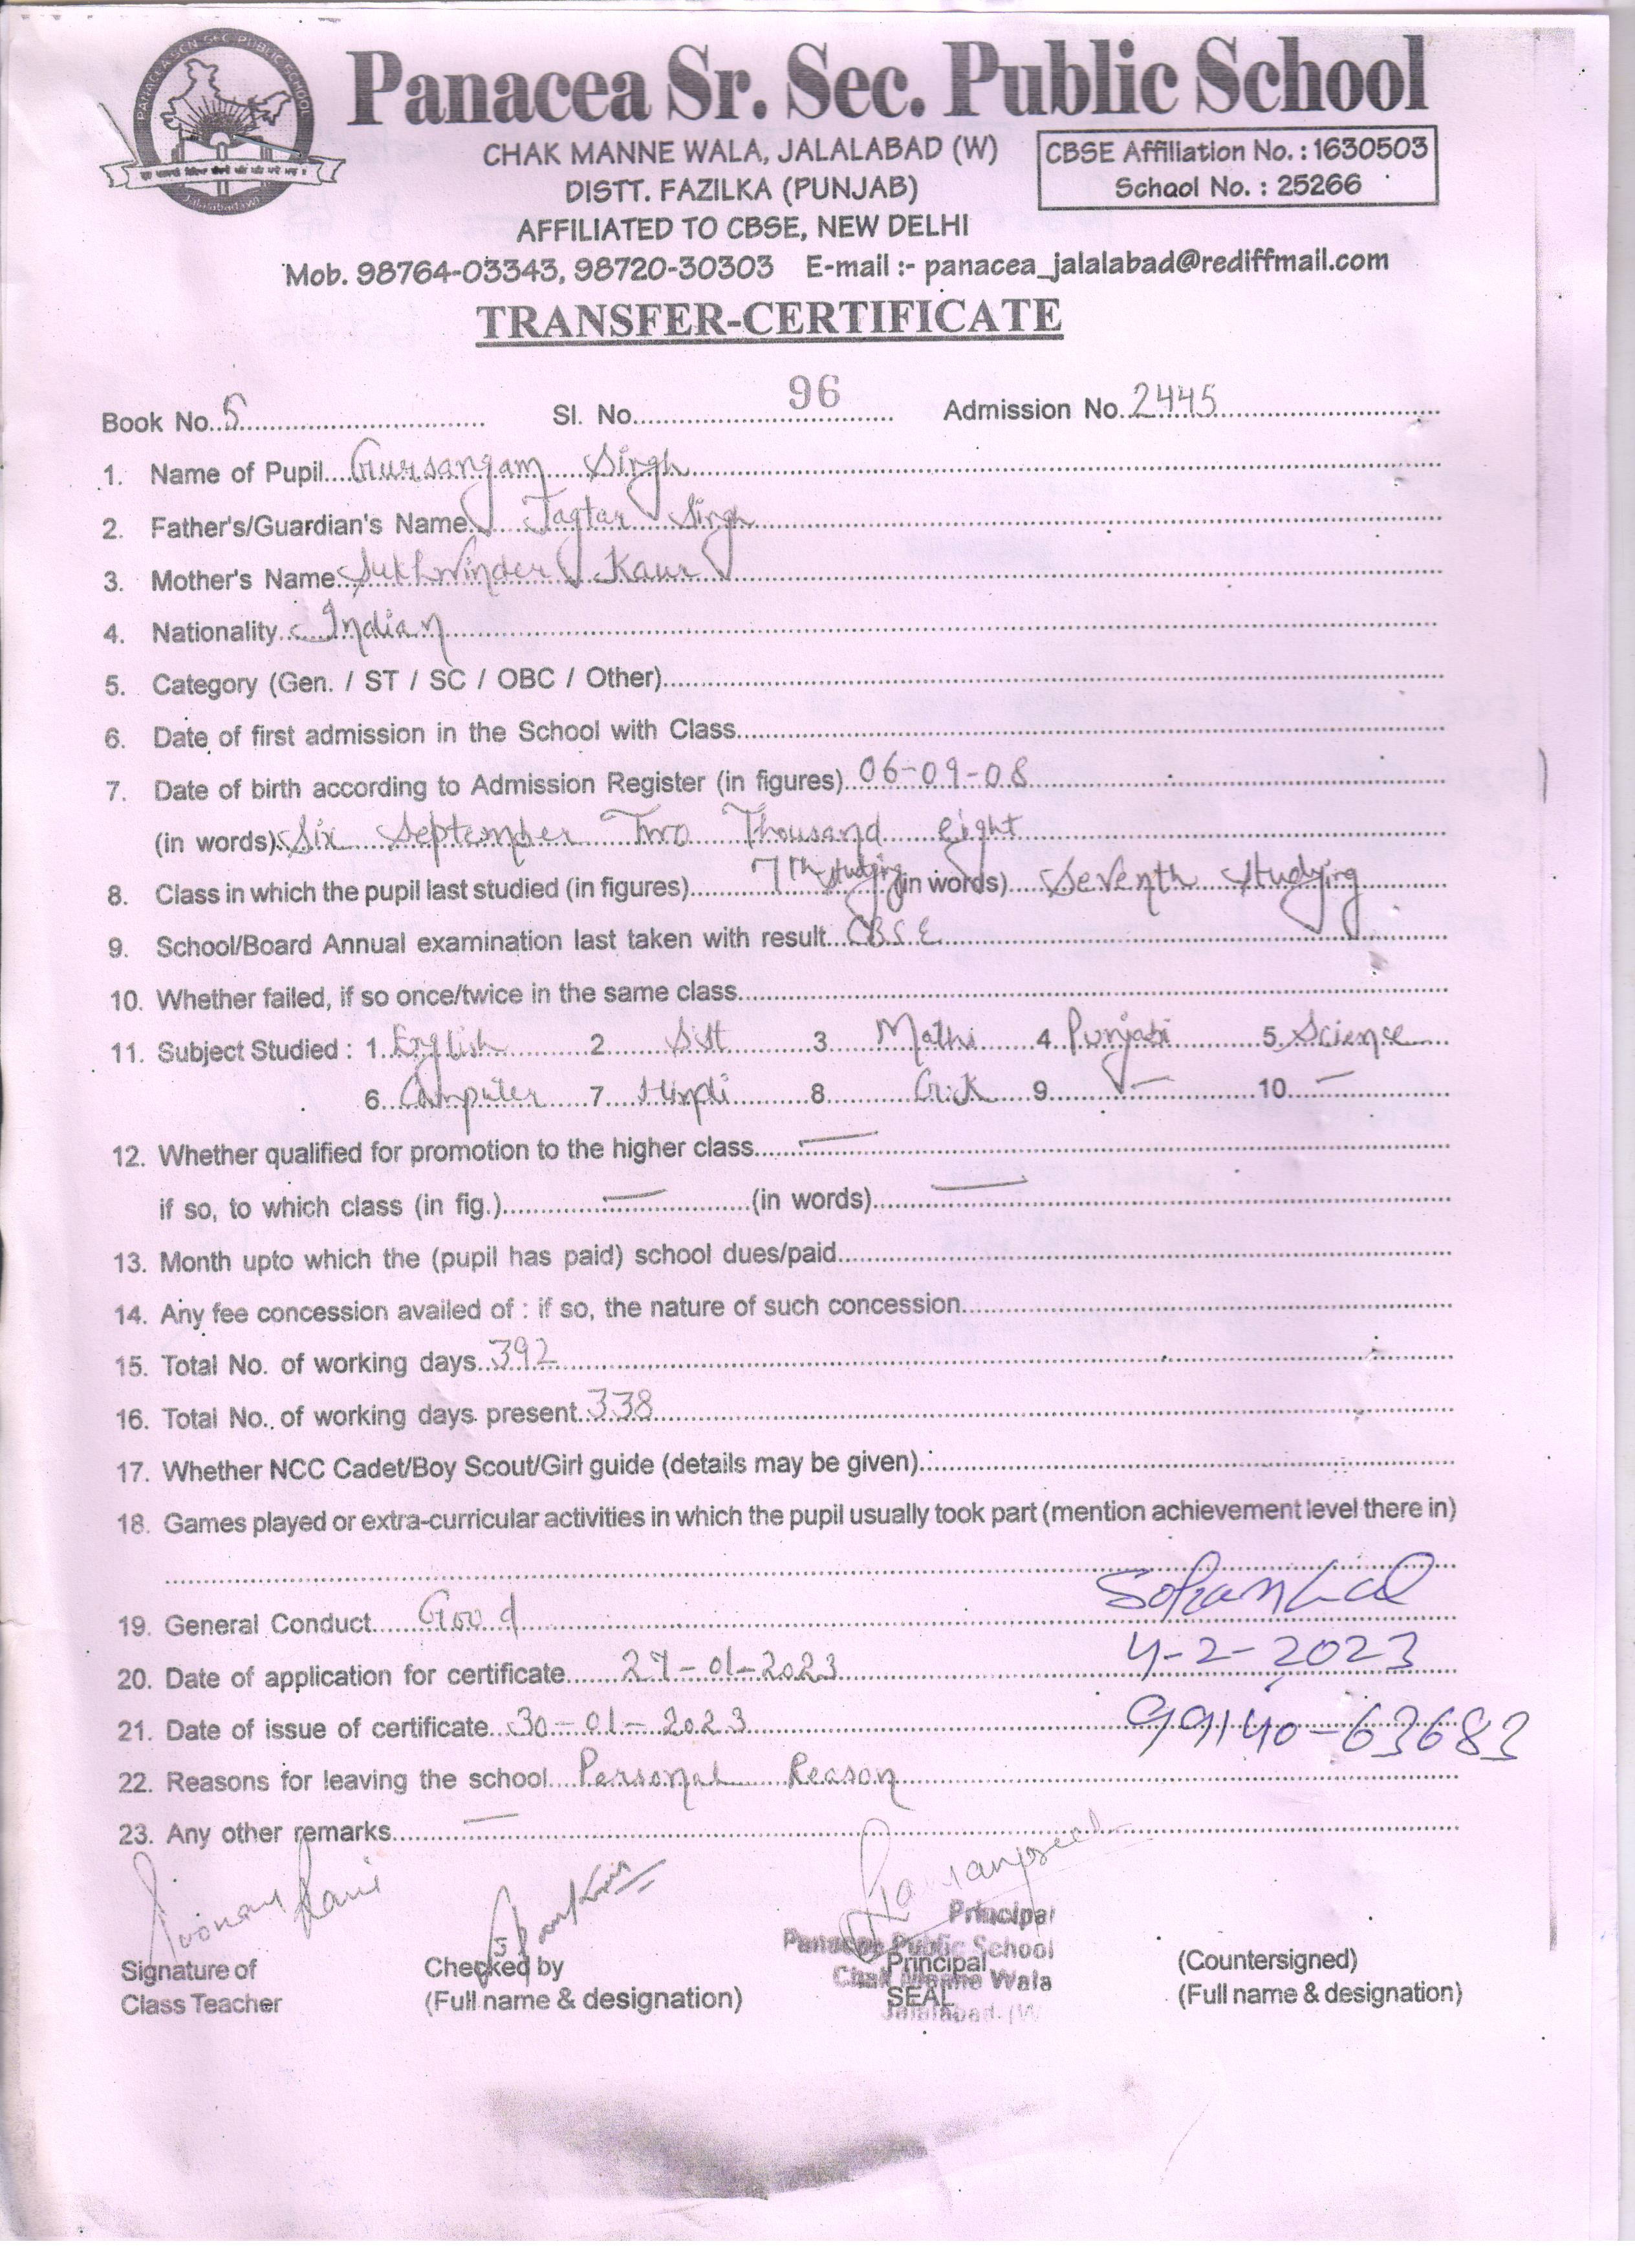 PANACEA SCN. SEC. PUBLIC SCHOOL
Jalalabad (W)
Panacea Sr. Sec. Public School
CHAK MANNE WALA, JALALABAD (W)
CBSE Affiliation No. : 1630503
DISTT. FAZILKA (PUNJAB)
School No. : 25266
AFFILIATED TO CBSE, NEW DELHI
Mob. 98764-03343, 98720-30303 E-mail :- panacea_jalalabad@rediffmail.com
TRANSFER-CERTIFICATE
Book No. 5 Sl. No. 96 Admission No. 2445
1. Name of Pupil Gursangam Singh
2. Father's/Guardian's Name Jagtar Singh
3. Mother's Name Sukhwinder Kaur
4. Nationality Indian
5. Category (Gen. / ST / SC / OBC / Other)
6. Date of first admission in the School with Class
7. Date of birth according to Admission Register (in figures) 06-09-08
(in words) Six September Two Thousand eight
8. Class in which the pupil last studied (in figures) 7th studying (in words) Seventh Studying
9. School/Board Annual examination last taken with result CBSE
10. Whether failed, if so once/twice in the same class
11. Subject Studied : 1 English 2 SSt 3 Math 4 Punjabi 5 Science
6 Computer 7 Hindi 8 G.K 9 — 10 —
12. Whether qualified for promotion to the higher class —
if so, to which class (in fig.) — (in words) —
13. Month upto which the (pupil has paid) school dues/paid
14. Any fee concession availed of : if so, the nature of such concession
15. Total No. of working days 392
16. Total No. of working days present 338
17. Whether NCC Cadet/Boy Scout/Girl guide (details may be given)
18. Games played or extra-curricular activities in which the pupil usually took part (mention achievement level there in)
Sohan Lal
19. General Conduct Good
4-2-2023
20. Date of application for certificate 27-01-2023
21. Date of issue of certificate 30-01-2023
99140-63683
22. Reasons for leaving the school Personal Reason
23. Any other remarks —
Principal
Panacea Public School
Chak Manne Wala
Jalalabad (W
Signature of
Class Teacher
Checked by
(Full name & designation)
Principal
SEAL
(Countersigned)
(Full name & designation)